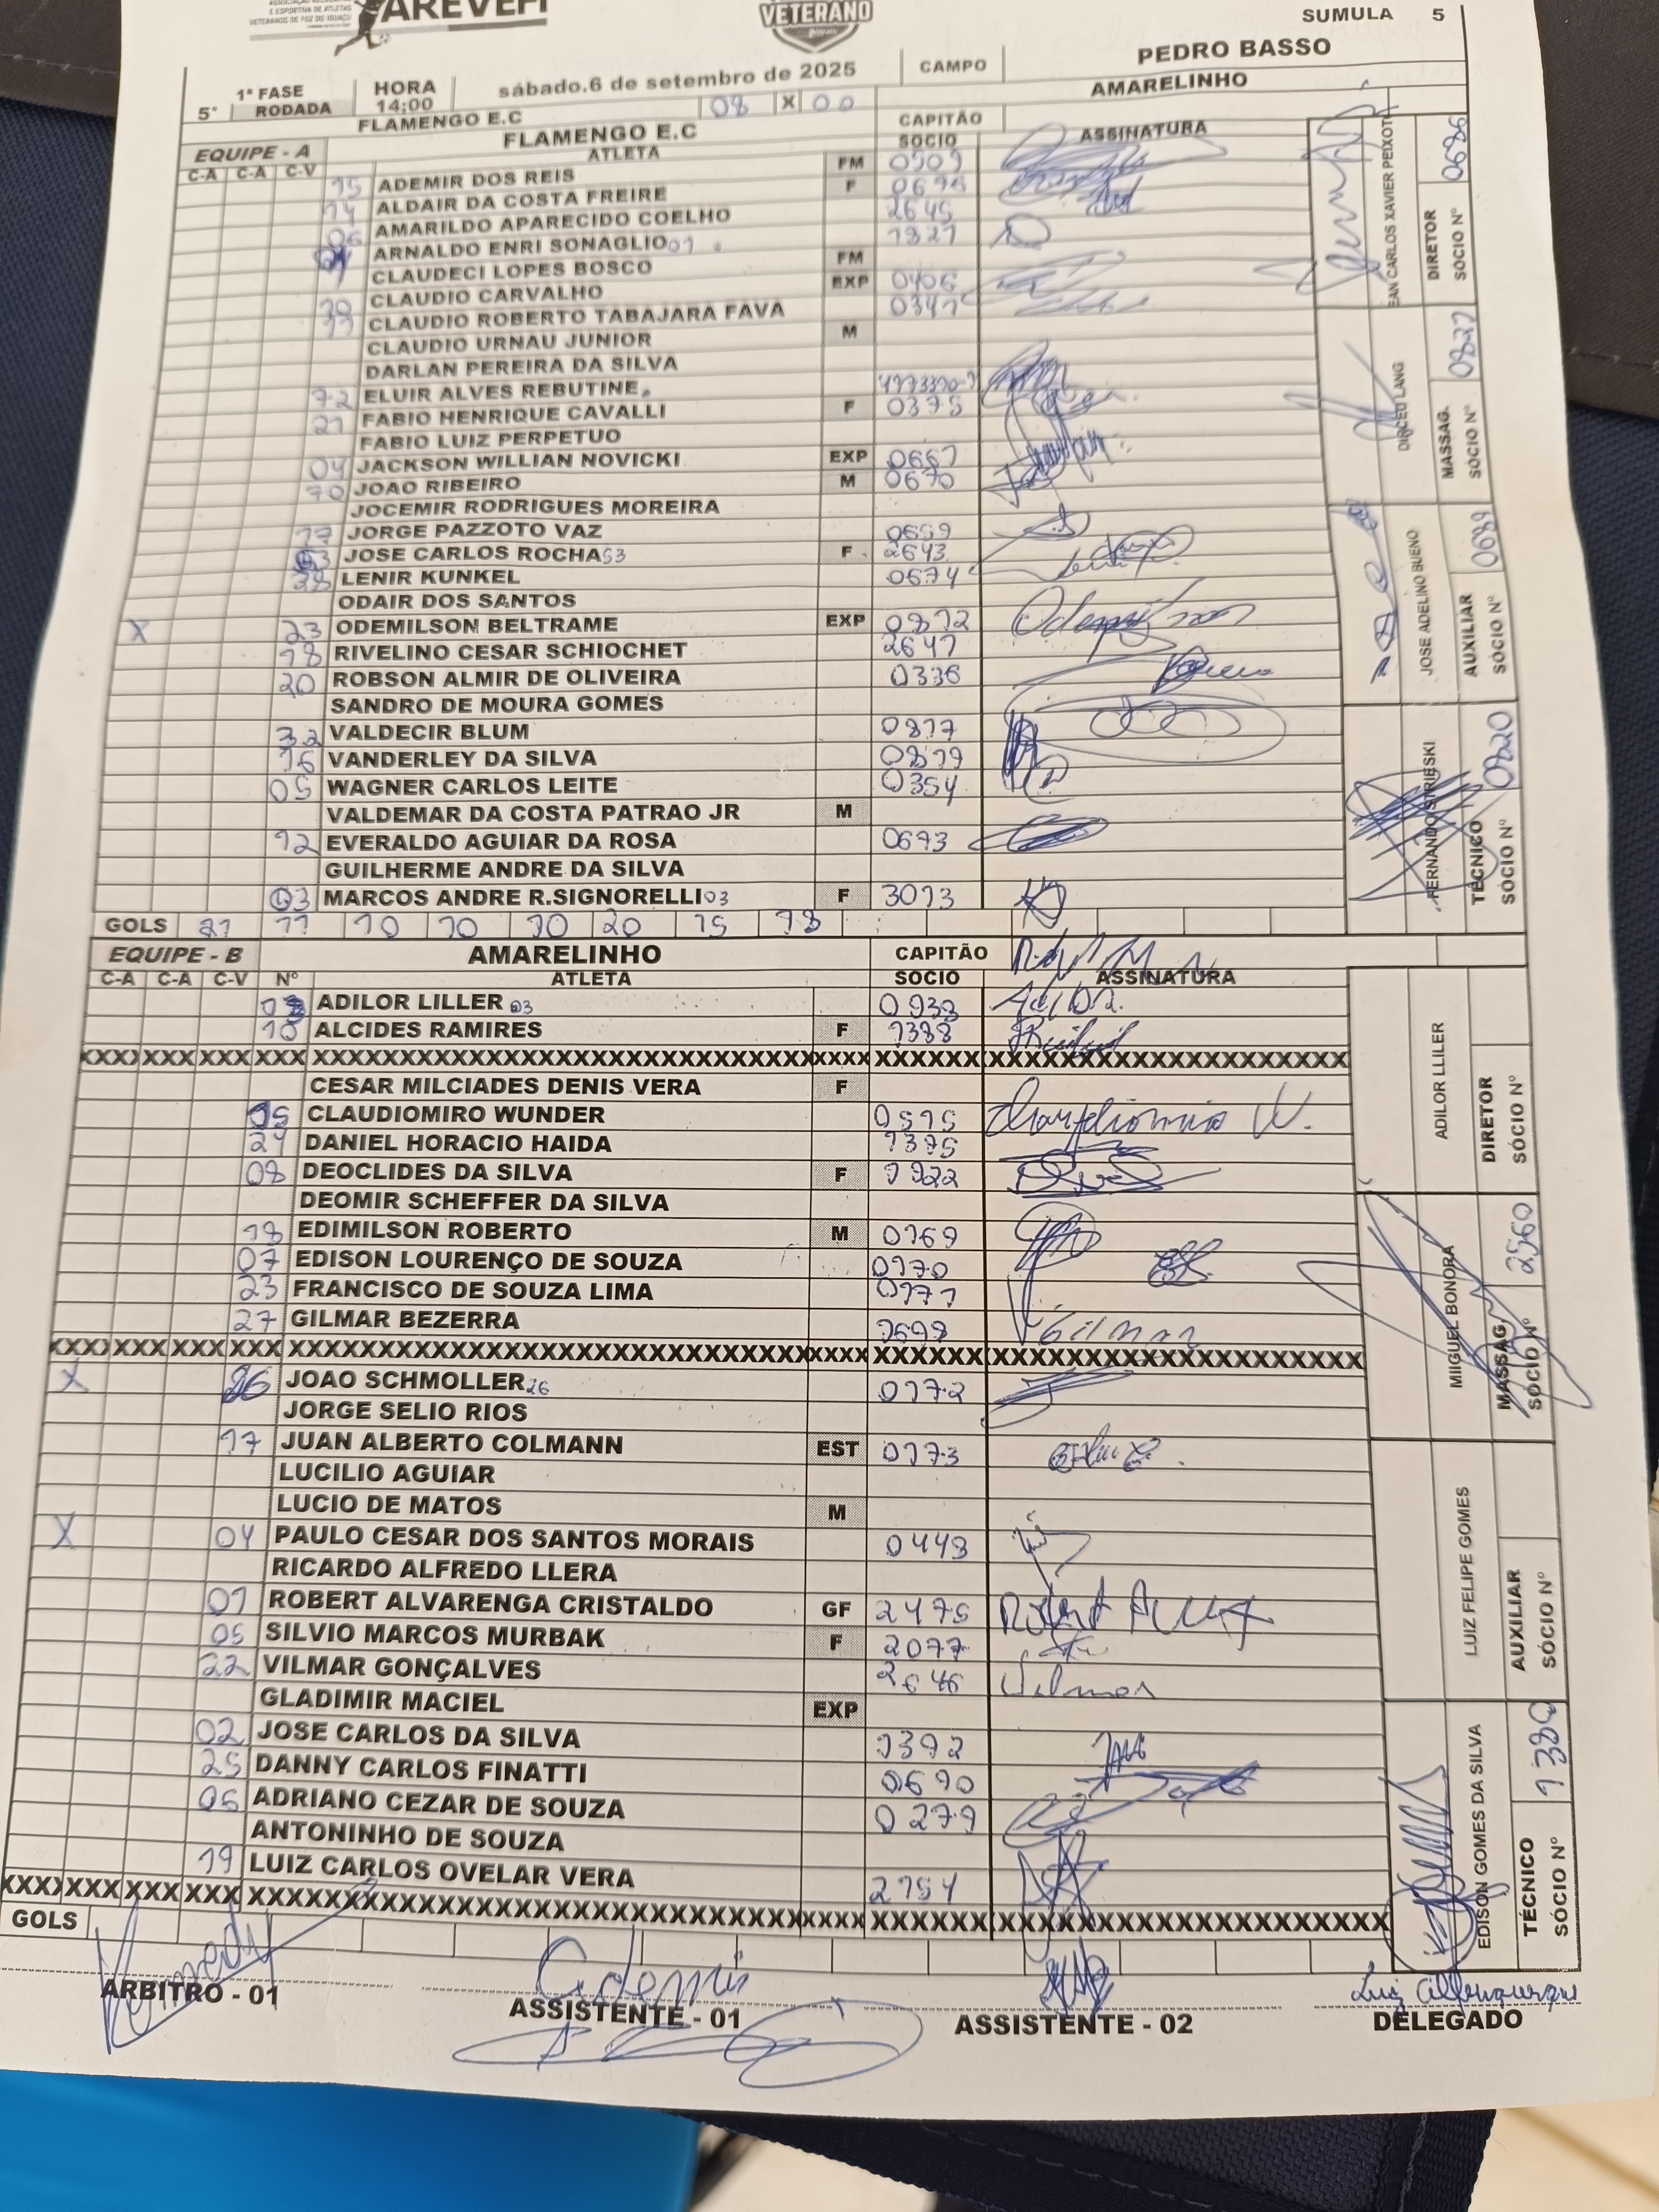 E ESPORTIVA DE ATLETAS
VETERANOS DE FOZ DO IGUAÇU
AREVEFI
VETERANO
SUMULA 5
5° 1ª FASE RODADA HORA 14:00 sábado.6 de setembro de 2025 CAMPO PEDRO BASSO
FLAMENGO E.C 08 X 00 AMARELINHO
EQUIPE - A FLAMENGO E.C CAPITÃO
C-A C-A C-V ATLETA SOCIO ASSINATURA
15 ADEMIR DOS REIS FM
14 ALDAIR DA COSTA FREIRE F
06 AMARILDO APARECIDO COELHO 2645
ARNALDO ENRI SONAGLIO 01 1827
CLAUDECI LOPES BOSCO FM
CLAUDIO CARVALHO EXP 0406
11 CLAUDIO ROBERTO TABAJARA FAVA 0347
CLAUDIO URNAU JUNIOR M
DARLAN PEREIRA DA SILVA
72 ELUIR ALVES REBUTINE
21 FABIO HENRIQUE CAVALLI F 0375
FABIO LUIZ PERPETUO
04 JACKSON WILLIAN NOVICKI EXP 0667
70 JOAO RIBEIRO M 0670
JOCEMIR RODRIGUES MOREIRA
JORGE PAZZOTO VAZ 0659
JOSE CARLOS ROCHA 53 F 2643
38 LENIR KUNKEL 0674
ODAIR DOS SANTOS
X 23 ODEMILSON BELTRAME EXP 0872
18 RIVELINO CESAR SCHIOCHET 2647
20 ROBSON ALMIR DE OLIVEIRA 0336
SANDRO DE MOURA GOMES
32 VALDECIR BLUM 0877
16 VANDERLEY DA SILVA 0879
05 WAGNER CARLOS LEITE 0354
VALDEMAR DA COSTA PATRAO JR M
12 EVERALDO AGUIAR DA ROSA 0673
GUILHERME ANDRE DA SILVA
03 MARCOS ANDRE R.SIGNORELLI 03 F 3013
GOLS 21 11 10 10 10 20 15 18
JEAN CARLOS XAVIER PEIXOTO
DIRETOR
SÓCIO Nº 0686
DIRCEU LANG
MASSAG.
SÓCIO Nº 0827
JOSE ADELINO BUENO
AUXILIAR
SÓCIO Nº 0689
FERNANDO STRIESKI
TÉCNICO
SÓCIO Nº 0820
EQUIPE - B AMARELINHO CAPITÃO
C-A C-A C-V Nº ATLETA SOCIO ASSINATURA
ADILOR LILLER 03 0938
10 ALCIDES RAMIRES F 1388
XXXXXXXXXXXXXXXXXXXXXXXX
CESAR MILCIADES DENIS VERA F
15 CLAUDIOMIRO WUNDER 0515 Claudiomiro W.
24 DANIEL HORACIO HAIDA 1375
08 DEOCLIDES DA SILVA F 1922
DEOMIR SCHEFFER DA SILVA
18 EDIMILSON ROBERTO M 0169
07 EDISON LOURENÇO DE SOUZA 0170
23 FRANCISCO DE SOUZA LIMA 0171
27 GILMAR BEZERRA 1698 Gilmar
XXXXXXXXXXXXXXXXXXXXXXXX
X 26 JOAO SCHMOLLER 26 0172
JORGE SELIO RIOS
17 JUAN ALBERTO COLMANN EST 0173
LUCILIO AGUIAR
LUCIO DE MATOS M
X 04 PAULO CESAR DOS SANTOS MORAIS 0448
RICARDO ALFREDO LLERA
01 ROBERT ALVARENGA CRISTALDO GF 2475 Robert
05 SILVIO MARCOS MURBAK F 2077
22 VILMAR GONÇALVES 2646 Vilmar
GLADIMIR MACIEL EXP
02 JOSE CARLOS DA SILVA 1392
25 DANNY CARLOS FINATTI 0690
06 ADRIANO CEZAR DE SOUZA 0279
ANTONINHO DE SOUZA
19 LUIZ CARLOS OVELAR VERA 2754
XXXXXXXXXXXXXXXXXXXXXXXX
GOLS
ADILOR LLILER
DIRETOR
SÓCIO Nº
MIIGUEL BONORA
MASSAG.
SÓCIO Nº 2560
LUIZ FELIPE GOMES
AUXILIAR
SÓCIO Nº
EDISON GOMES DA SILVA
TÉCNICO
SÓCIO Nº 1380
Kennedy Ademir Luiz Albuquerque
ARBITRO - 01 ASSISTENTE - 01 ASSISTENTE - 02 DELEGADO